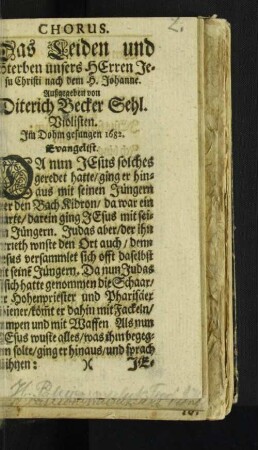 CHORUS.
2.
Das Leiden und
Sterben unsers HErren Je-
su Christi nach dem H. Johanne.
Außgegeben von
Diterich Becker Sehl.
Violisten.
Im Dohm gesungen 1682.
Evangelist.
DA nun JEsus solches
geredet hatte/ ging er hin-
aus mit seinen Jüngern
er den Bach Kidron/ da war ein
arte/ darein ging JEsus mit sei-
n Jüngern. Judas aber/ der ihn
rieth wuste den Ort auch/ denn
esus versammlet sich offt daselbst
it seinē Jüngern. Da nun Judas
sich hatte genommen die Schaar/
e Hohenpriester und Pharisäer
iener/ kōmt er dahin mit Fackeln/
ampen und mit Waffen Als nun
Esus wuste alles/ was ihm begeg-
n solte/ ging er hinaus/ und sprach
ihnen: X JE-